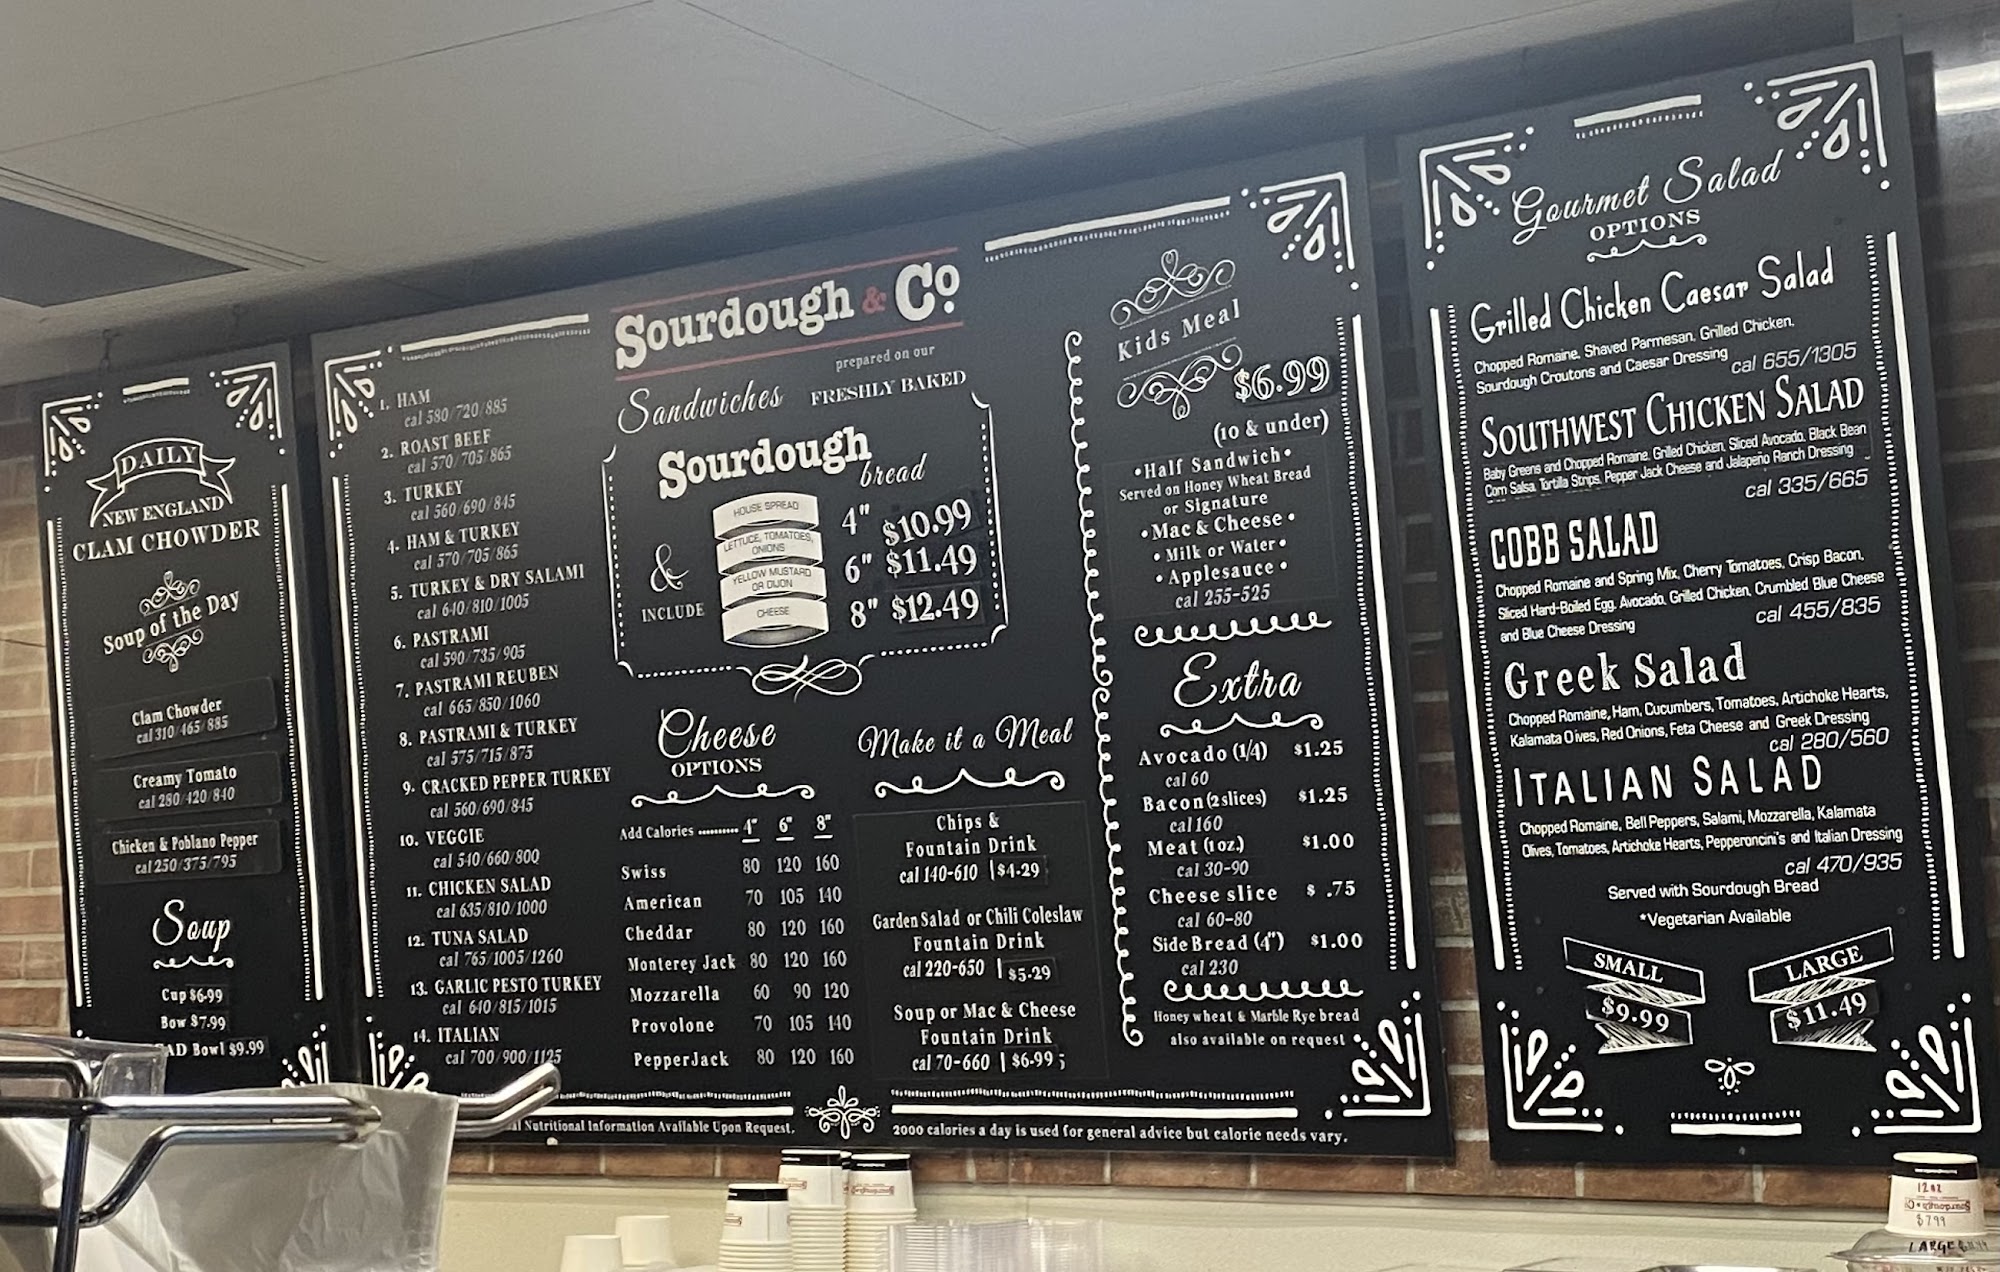 DAILY
NEW ENGLAND
CLAM CHOWDER
Soup of the Day
Clam Chowder
cal 310/465/885
Creamy Tomato
cal 280/420/840
Chicken & Poblano Pepper
cal 250/375/795
Soup
Cup $6.99
Bow $7.99
AD Bowl $9.99
1. HAM
cal 580/720/885
2. ROAST BEEF
cal 570/705/865
3. TURKEY
cal 560/690/845
4. HAM & TURKEY
cal 570/705/865
5. TURKEY & DRY SALAMI
cal 640/810/1005
6. PASTRAMI
cal 590/735/905
7. PASTRAMI REUBEN
cal 665/850/1060
8. PASTRAMI & TURKEY
cal 575/715/875
9. CRACKED PEPPER TURKEY
cal 560/690/845
10. VEGGIE
cal 540/660/800
11. CHICKEN SALAD
cal 635/810/1000
12. TUNA SALAD
cal 765/1005/1260
13. GARLIC PESTO TURKEY
cal 640/815/1015
14. ITALIAN
cal 700/900/1125
Sourdough & Co.
Sandwiches
prepared on our
FRESHLY BAKED
Sourdough
bread
& INCLUDE
HOUSE SPREAD
LETTUCE, TOMATOES,
ONIONS
YELLOW MUSTARD
OR DIJON
CHEESE
4" $10.99
6" $11.49
8" $12.49
Cheese
OPTIONS
Add Calories .......... 4" 6" 8"
Swiss 80 120 160
American 70 105 140
Cheddar 80 120 160
Monterey Jack 80 120 160
Mozzarella 60 90 120
Provolone 70 105 140
PepperJack 80 120 160
Make it a Meal
Chips &
Fountain Drink
cal 140-610 | $4.29
Garden Salad or Chili Coleslaw
Fountain Drink
cal 220-650 | $5.29
Soup or Mac & Cheese
Fountain Drink
cal 70-660 | $6.99 ;
Kids Meal
$6.99
(10 & under)
•Half Sandwich•
Served on Honey Wheat Bread
or Signature
•Mac & Cheese•
• Milk or Water•
• Applesauce •
cal 255-525
Extra
Avocado (1/4) $1.25
cal 60
Bacon (2 slices) $1.25
cal 160
Meat (1 oz.) $1.00
cal 30-90
Cheese slice $ .75
cal 60-80
Side Bread (4") $1.00
cal 230
Honey wheat & Marble Rye bread
also available on request
Nutritional Information Available Upon Request.
2000 calories a day is used for general advice but calorie needs vary.
Gourmet Salad
OPTIONS
Grilled Chicken Caesar Salad
Chopped Romaine, Shaved Parmesan, Grilled Chicken,
Sourdough Croutons and Caesar Dressing
cal 655/1305
SOUTHWEST CHICKEN SALAD
Baby Greens and Chopped Romaine, Grilled Chicken, Sliced Avocado, Black Bean
Corn Salsa, Tortilla Strips, Pepper Jack Cheese and Jalapeño Ranch Dressing
cal 335/665
COBB SALAD
Chopped Romaine and Spring Mix, Cherry Tomatoes, Crisp Bacon,
Sliced Hard-Boiled Egg, Avocado, Grilled Chicken, Crumbled Blue Cheese
and Blue Cheese Dressing
cal 455/835
Greek Salad
Chopped Romaine, Ham, Cucumbers, Tomatoes, Artichoke Hearts,
Kalamata Olives, Red Onions, Feta Cheese and Greek Dressing
cal 280/560
ITALIAN SALAD
Chopped Romaine, Bell Peppers, Salami, Mozzarella, Kalamata
Olives, Tomatoes, Artichoke Hearts, Pepperoncini's and Italian Dressing
cal 470/935
Served with Sourdough Bread
*Vegetarian Available
SMALL
$9.99
LARGE
$11.49
12oz
$7.99
LARGE